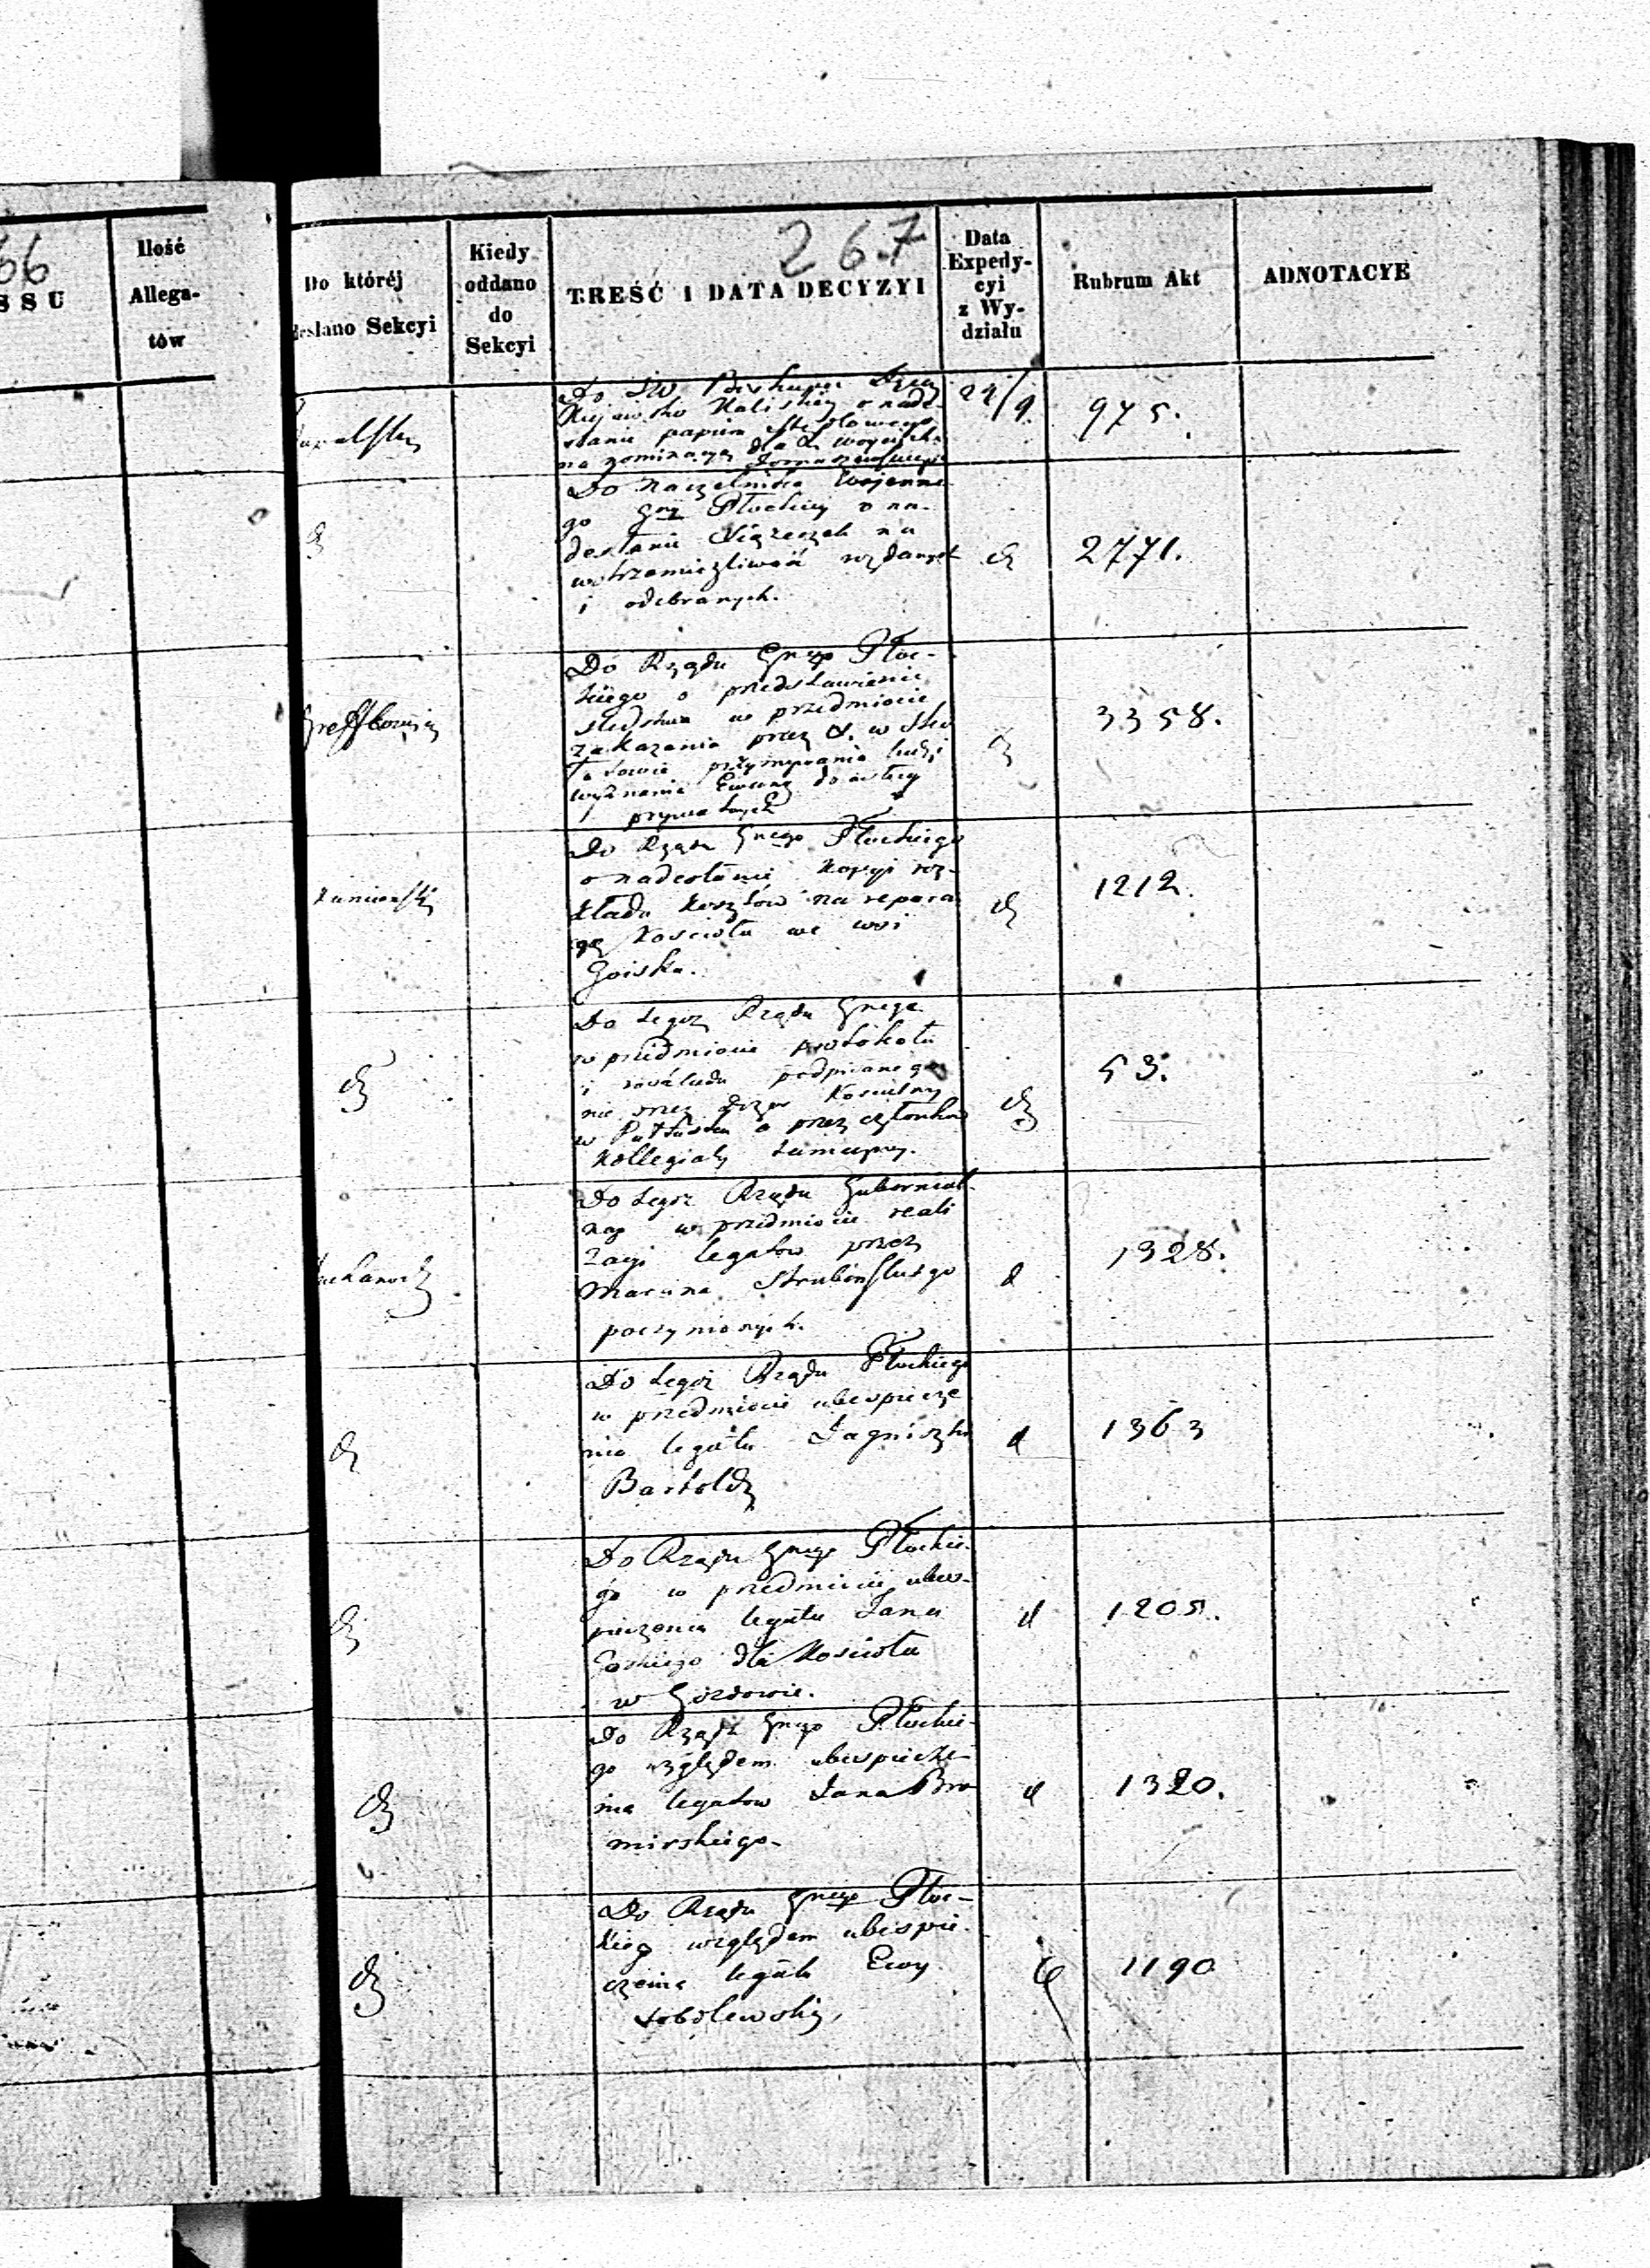 66
SSU
Ilość
Allega-
tów
267
Do której
Sekcyi
Kiedy
oddano
do
Sekcyi
TREŚĆ I DATA DECYZYI
Data
Expedy-
cyi
z Wy-
działu
Rubrum Akt
ADNOTACYE
Do JW Biskupa
Kujawsko Kaliskiej o nade-
słanie papieru stęplowego
na nominacyą dla X.
24/9
975.
Do Naczelnika Wojenne-
go Płockiej o na-
desłanie książeczek na
wstrzemięźliwość wydanych
i odebranych.
2771.
Do Rządu Gnego Płoc-
kiego o przedstawienie
śledztwa w przedmiocie
zakazania przez X. w
przyjmowania ludzi
wyznania Ewang. do
3358.
Do Rządu Gnego Płockiego
o nadesłanie kopji roz-
kładu kosztów na repara-
cyę Kościoła we wsi
Gójska.
1212.
Do tegoż Rządu Gnego
w przedmiocie protokółu
i podpisanego
nie przez Kościelny
w Pułtusku a przez członków
Kollegiaty tamecznej.
53.
Do tegoż Rządu Gubernial-
nego w przedmiocie reali
zacyi legatów przez
Marcina
poczynionych.
1328.
Do tegoż Rządu Płockiego
w przedmiocie ubezpiecze
nia legatu Jagniszki
Bartoldy
1363
Do Rządu Gnego Płockie-
go w przedmiocie ubez-
pieczenia legatu Jana
dla Kościoła
w Gozdowie.
1205.
Do Rządu Gnego Płockie-
go względem ubezpiecze-
nia legatów Jana Bro-
mirskiego.
1320.
Do Rządu Gnego Płoc-
kiego względem ubezpie-
czenia legatu Ewy
Sobolewskiej,
1190